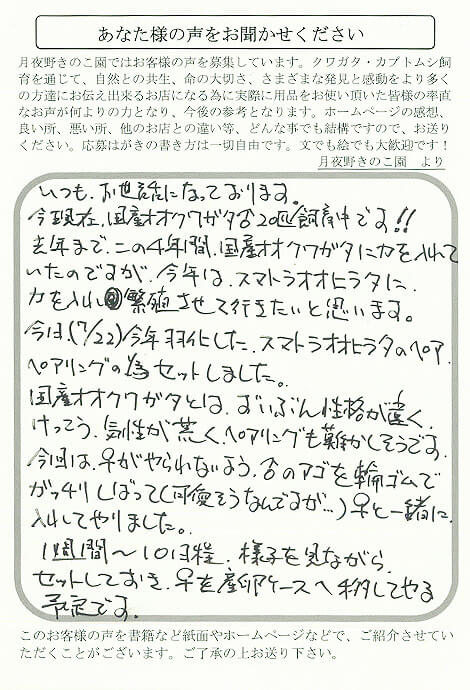 あなた様の声をお聞かせください
月夜野きのこ園ではお客様の声を募集しています。クワガタ・カブトムシ飼
育を通じて、自然との共生、命の大切さ、さまざまな発見と感動をより多く
の方達にお伝え出来るお店になる為に実際に用品をお使い頂いた皆様の率直
なお声が何よりの力となり、今後の参考となります。ホームページの感想、
良い所、悪い所、他のお店との違い等、どんな事でも結構ですので、お送り
ください。応募はがきの書き方は一切自由です。文でも絵でも大歓迎です！
月夜野きのこ園　より
いつも、お世話になっております。
今現在、国産オオクワガタ合20匹飼育中です!!
去年まで、この4年間、国産オオクワガタに力を入れて
いたのですが、今年は、スマトラオオヒラタに、
力を入れ繁殖させて行きたいと思います。
今日、(7/22)今年羽化した、スマトラオオヒラタのペア、
ペアリングの為セットしました。
国産オオクワガタとは、ずいぶん性格が違く、
けっこう、気性が荒く、ペアリングも難かしそうです。
今回は、♀がやられないよう、♂のアゴを輪ゴムで
がっちりしばって(可愛そうなんですが…)♀と一緒に、
入れてやりました。
1週間〜10日程、様子を見ながら、
セットしておき、♀を産卵ケースへ移してやる
予定です。
このお客様の声を書籍など紙面やホームページなどで、ご紹介させてい
ただくことがございます。ご了承の上お送り下さい。